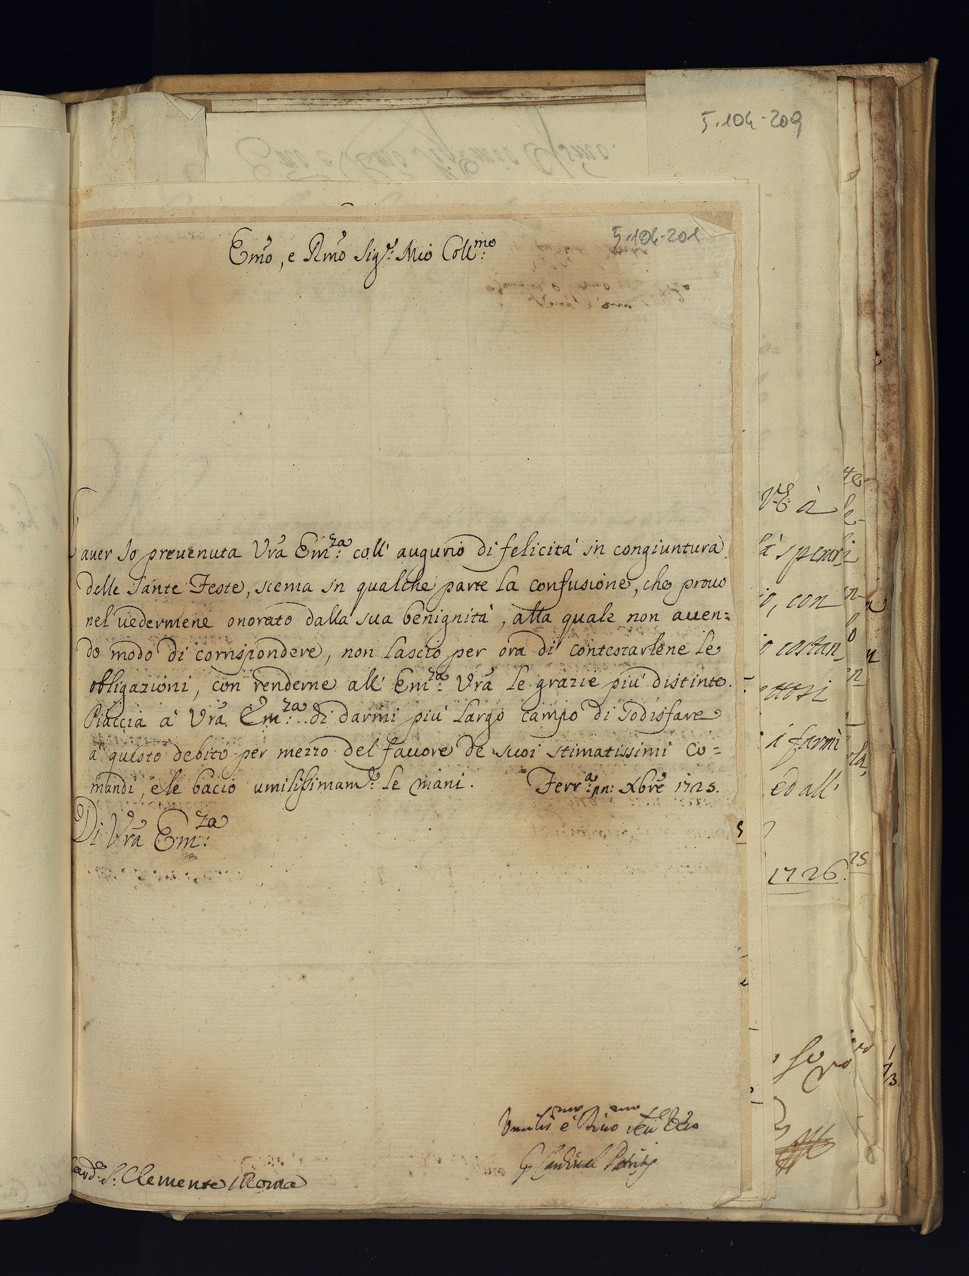 5.104-209
5.104-201
Emo, e Rmo Sigr. Mio Collmo
auer Io preuenuta Vra Emza coll' augurio di felicità in congiuntura
delle Sante Feste, scema in qualche parte la confusione, che prouo
nel uedermene onorato dalla sua benignità, alla quale non auen=
do modo di corrispondere, non lascio per ora di contestarlene le
obligazioni, con renderne all' Emza Vra le grazie più distinte.
Piaccia à Vra Emza di darmi più largo campo di sodisfare
a' questo debito per mezzo del fauore de suoi stimatissimi co=
mandi, e le bacio umilissimamte le mani. Ferra pn: Xbre 1725.
Di Vra Emza
S. Clemente / Roma
G Cardinal
V.E. à
io, con
costan
i farmi
ed all'
1726.
25